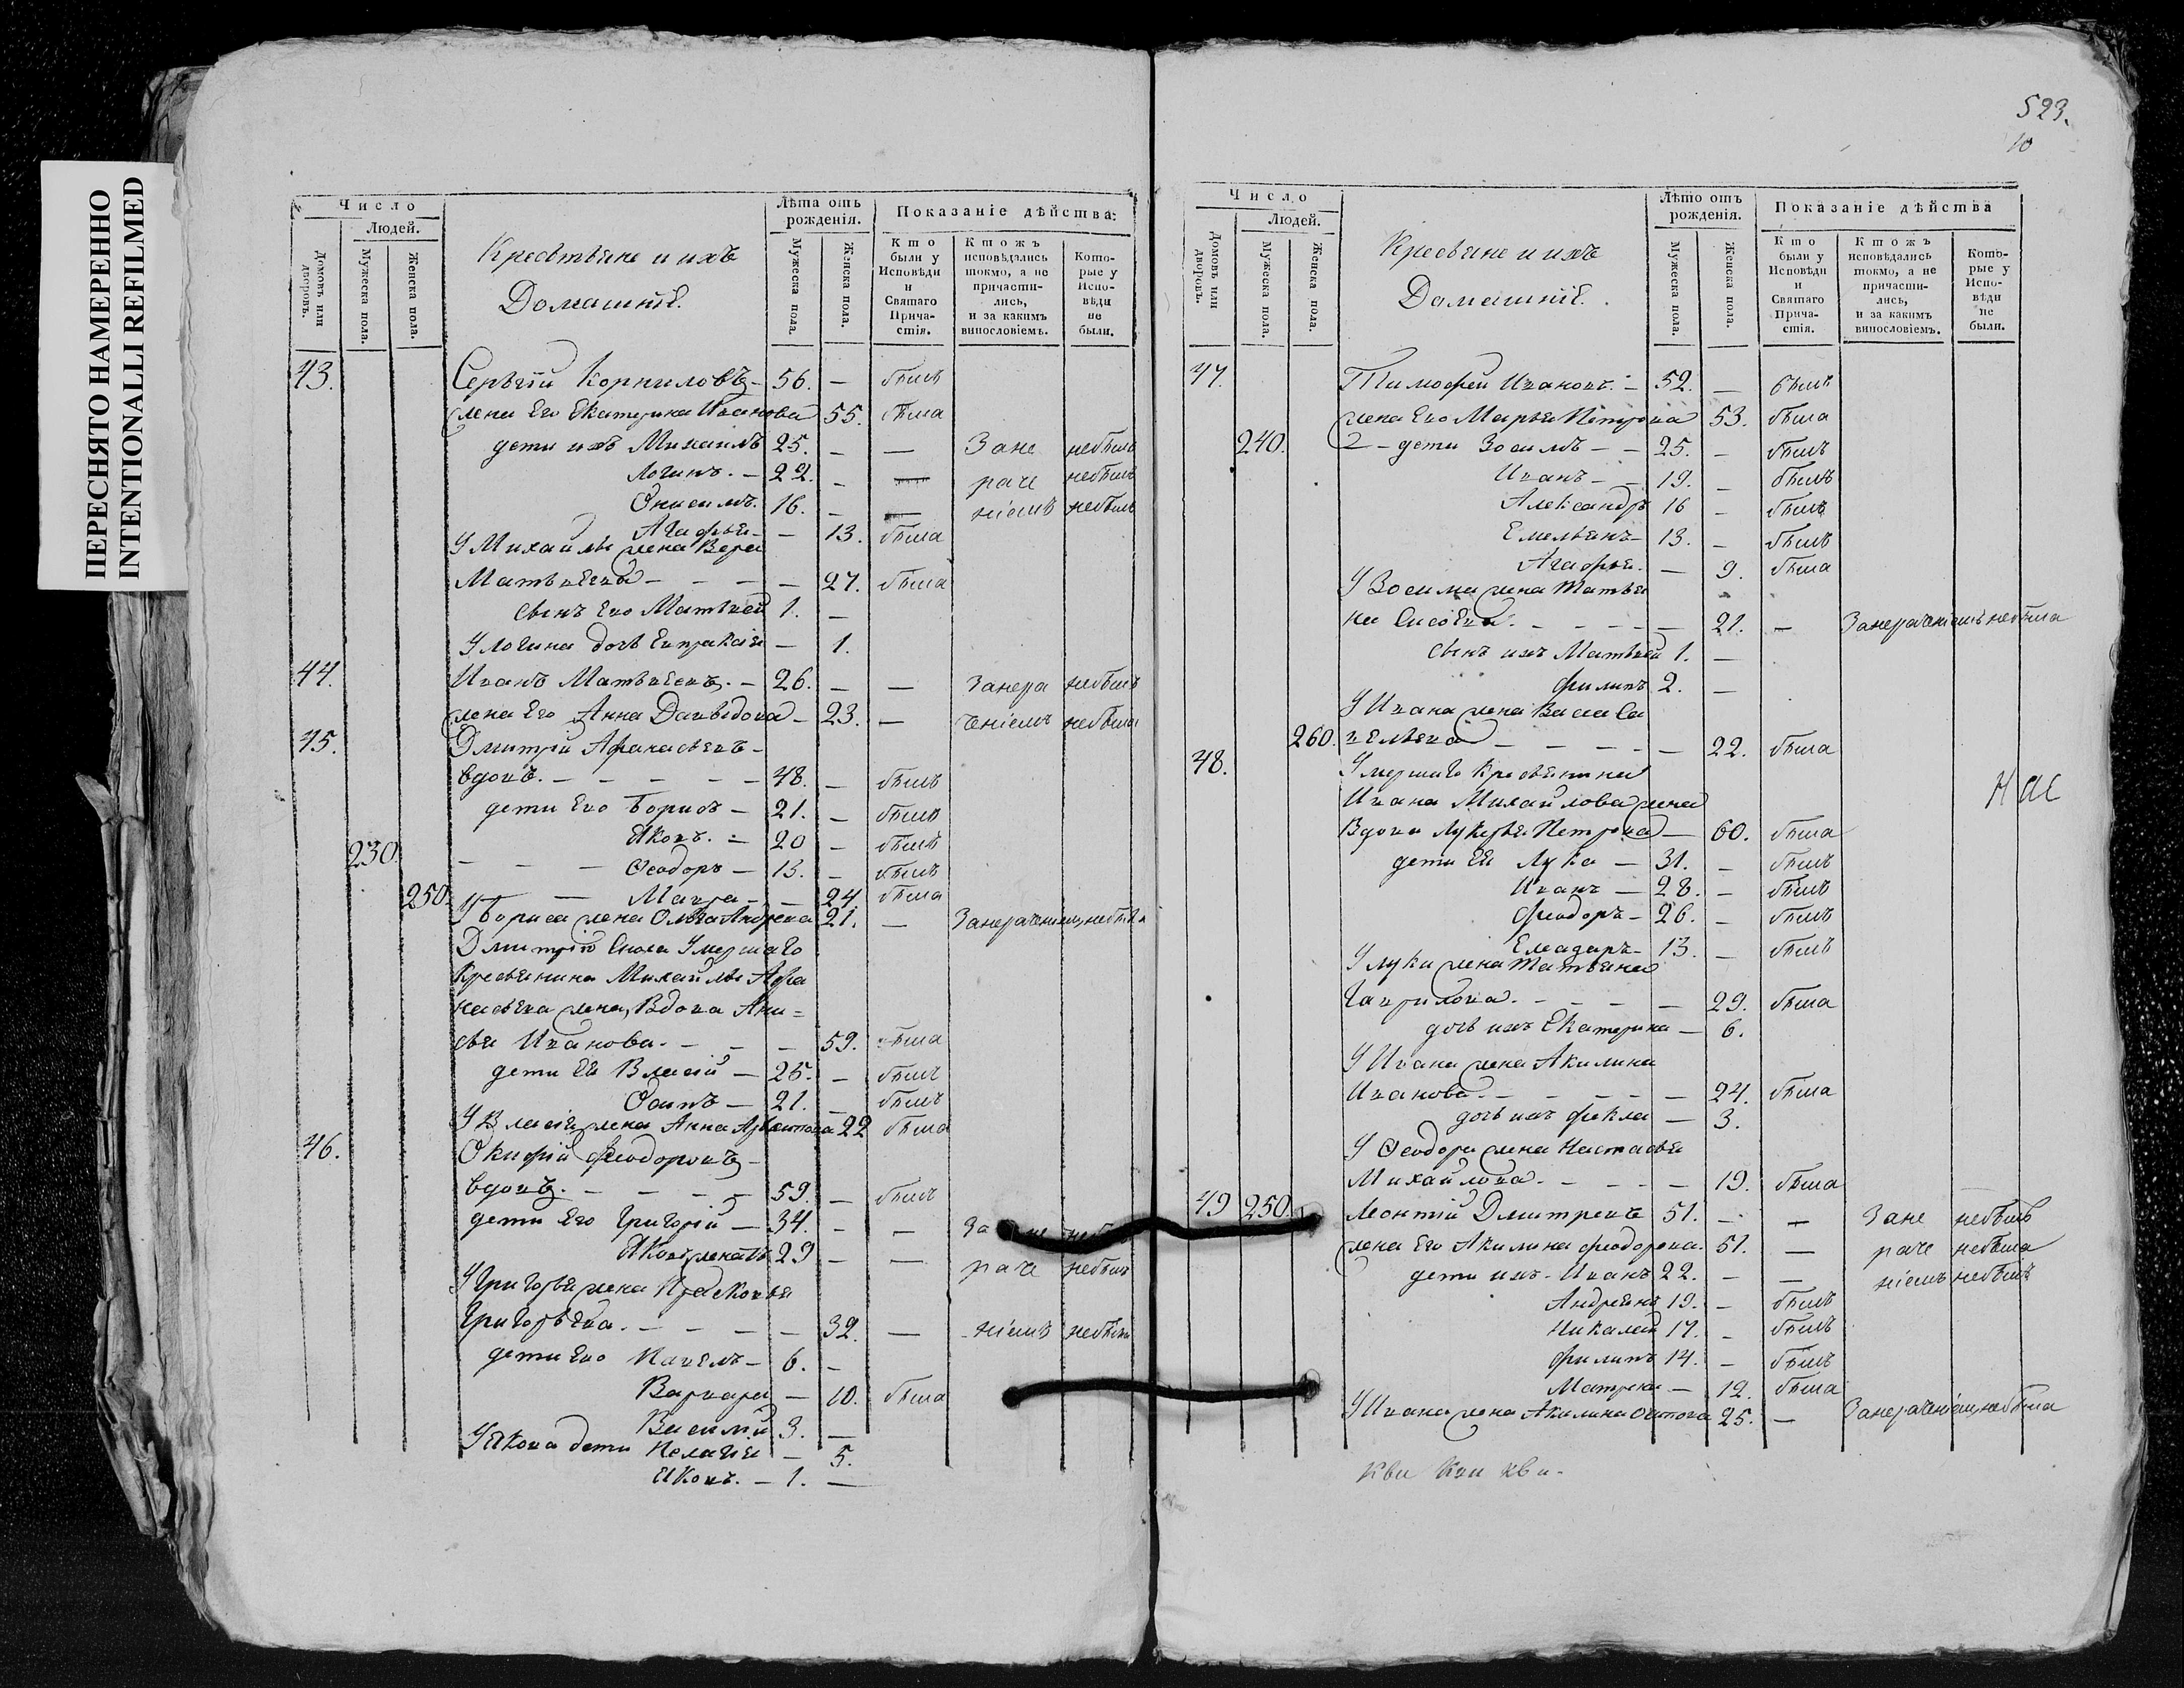 ПЕРЕСНЯТО НАМЕРЕННО
INTENTIONALLI REFILMED
Число
Людей.
Домовъ или дворовъ.
Мужеска пола.
Женска пола.
Крестьяне и ихъ
Домашніе.
Лѣта отъ рожденія.
Мужеска пола.
Женска пола.
Показаніе дѣйства:
Кто были у Исповѣди и Святаго Причастія.
Ктожъ исповѣдались токмо, а не причастились, и за какимъ винословіемъ.
Которые у Исповѣди не были.
43. Сергѣй Корниловъ - 56. — былъ
жена Его Екатерина Иванова 55. была
дети ихъ Михаилъ 25. — — Зане небылъ
Логинъ. - 22. — — раче небылъ
Онисимъ. 16. — — ніемъ небылъ
Агафья - — 13. была
У Михайлы жена Вера
Матвѣева - - - — 27. была
сынъ Его Матвѣй 1. —
У логина дочь Евпраксія — 1.
44. Иванъ Матвѣевъ. - 26. — — Занера небылъ
жена Его Анна Давыдова - 23. — ченіемъ небыла
45. Дмитрій Афанасьевъ -
вдовъ. - - - - - 48. — былъ
дети Его Борисъ - 21. — былъ
Яковъ. - 20 — былъ
230.
- - - Ѳеодоръ - 13. — былъ
250. — Мавра - — 24. была
У Бориса жена Ольга Андреева 21. — Занерачениемъ небыла
Дмитрію Сноха Умершаго
Крестьянина Михайлы Афа
насьева жена, Вдова Ани=
сья Иванова. - - — 59. была
дети Ея Власій - 25. — былъ
Осипъ - 21. — былъ
У Власія жена Анна 22 была
46. Окифій Феодоровъ -
вдовъ. - - - - 59. — былъ
дети Его Григорій - 34. — — За не
Яковъ женатъ 29 — — раче небылъ
У Григорья жена Прасковья
Григорьева. - - - — 32. — ніемъ небыла
дети Его Павелъ - 6. —
Варвара — 10. была
Василій 3. —
У Якова дети Пелагія — 5.
Яковъ. - 1. —
523.
10
Число
Людей.
Домовъ или дворовъ.
Мужеска пола.
Женска пола.
Кресьяне и ихъ
Домашніе.
Лѣто отъ рожденія.
Мужеска пола.
Женска пола.
Показаніе дѣйства
Кто были у Исповѣди и Святаго Причастія.
Ктожъ исповѣдались токмо, а не причастились, и за какимъ винословіемъ.
Которые у Исповѣди не были.
47. Тимофей Ивановъ. - 52. — былъ
жена Его Марья Петрова 53. была
240. 2 - дети Зосимъ - - 25. — былъ
Иванъ - - 19. — былъ
Александръ 16 — былъ
Емельянъ - 13. — былъ
Агафья. — 9. была
У Зосима жена Татья
на Сисоева. - - - - — 21. — Занераченіемъ небыла
сынъ ихъ Матвѣй 1. —
филипъ 2. —
У Ивана жена Васса Са
260. вельева - - - - — 22. была
48. Умершаго Кресьянина
Ивана Михайлова жена
Вдова Лукерья Петрова — 60. была
дети Ея Лука - 31. — былъ
Иванъ - 28. — былъ
феодоръ - 26. — былъ
13. — былъ
У луки жена Татьяна
Гаврилова. - - - — 29. была
дочь ихъ Екатерина — 6.
У Ивана жена Акилина
Иванова. - - - - — 24. была
дочь ихъ фекла — 3.
У Ѳеодора жена Настасья
Михайлова. - - - - — 19. была
49 250. Леонтій Дмитревъ 51. — — Зане небылъ
жена Его Акилина феодорова. 51. — раче небыла
дети ихъ - Иванъ 22. — — ніемъ небылъ
Андреянъ 19. — былъ
Николай 17. — былъ
филипъ 14. — былъ
Матрена — 12. была
У Ивана жена Акилина Осипова 25. — Занераченіемъ небыла